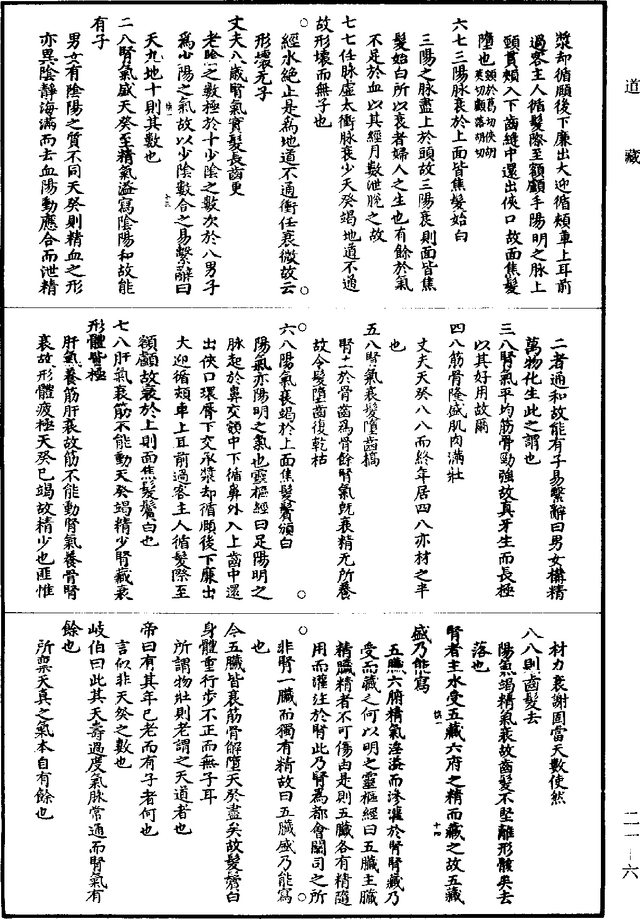 道藏
漿却循頤後下廉出大迎循頰車上耳前
過客主人循髮際至額顱手陽明之脉上
頸貫頰入下齒縫中還出俠口故面焦髮
墮也
六七三陽脉衰於上面皆焦髮始白
三陽之脉盡上於頭故三陽衰則面皆焦
髮始白所以衰者婦人之生也有餘於氣
不足於血以其經月數泄脫之故
七七任脉虛太衝脉衰少天癸竭地道不通
故形壞而無子也
經水絕止是爲地道不通衝任衰微故云
形壞无子
丈夫八歲腎氣實髮長齒更
老陰之數極於十少陰之數次於八男子
爲少陽之氣故以少陰數合之易繫辭曰
天九地十則其數也
二八腎氣盛天癸至精氣溢寫陰陽和故能
有子
男女有陰陽之質不同天癸則精血之形
亦異陰靜海滿而去血陽動應合而泄精
二者通和故能有子易繫辭曰男女構精
萬物化生此之謂也
三八腎氣平均筋骨勁強故真牙生而長極
以其好用故爾
四八筋骨隆盛肌肉滿壯
丈夫天癸八八而終年居四八亦材之半
也
五八腎氣衰髮墮齒槁
腎主於骨齒爲骨餘腎氣旣衰精无所養
故令髮墮齒復乾枯
六八陽氣衰竭於上面焦髮鬢頒白
陽氣亦陽明之氣也靈樞經曰足陽明之
脉起於鼻交頞中下循鼻外入上齒中還
出俠口環脣下交承漿却循頤後下廉出
大迎循頰車上耳前過客主人循髮際至
額顱故衰於上則面焦髮鬢白也
七八肝氣衰筋不能動天癸竭精少腎藏衰
形體皆極
肝氣養筋肝衰故筋不能動腎氣養骨腎
衰故形體疲極天癸已竭故精少也匪惟
材力衰謝固當天數使然
八八則齒髮去
陽氣竭精氣衰故齒髮不堅離形骸矣去
落也
腎者主水受五藏六府之精而藏之故五藏
盛乃能寫
五臟六腑精氣淫溢而滲灌於腎腎藏乃
受而藏之何以明之靈樞經曰五臟主臟
精臟精者不可傷由是則五臟各有精隨
用而灌注於腎此乃腎爲都會關司之所
非腎一臟而獨有精故曰五臟盛乃能寫
也
今五臟皆衰筋骨解墮天癸盡矣故髮鬢白
身體重行步不正而無子耳
所謂物壯則老謂之天道者也
帝曰有其年已老而有子者何也
言似非天癸之數也
岐伯曰此其天壽過度氣脉常通而腎氣有
餘也
所稟天真之氣本自有餘也
二一–六